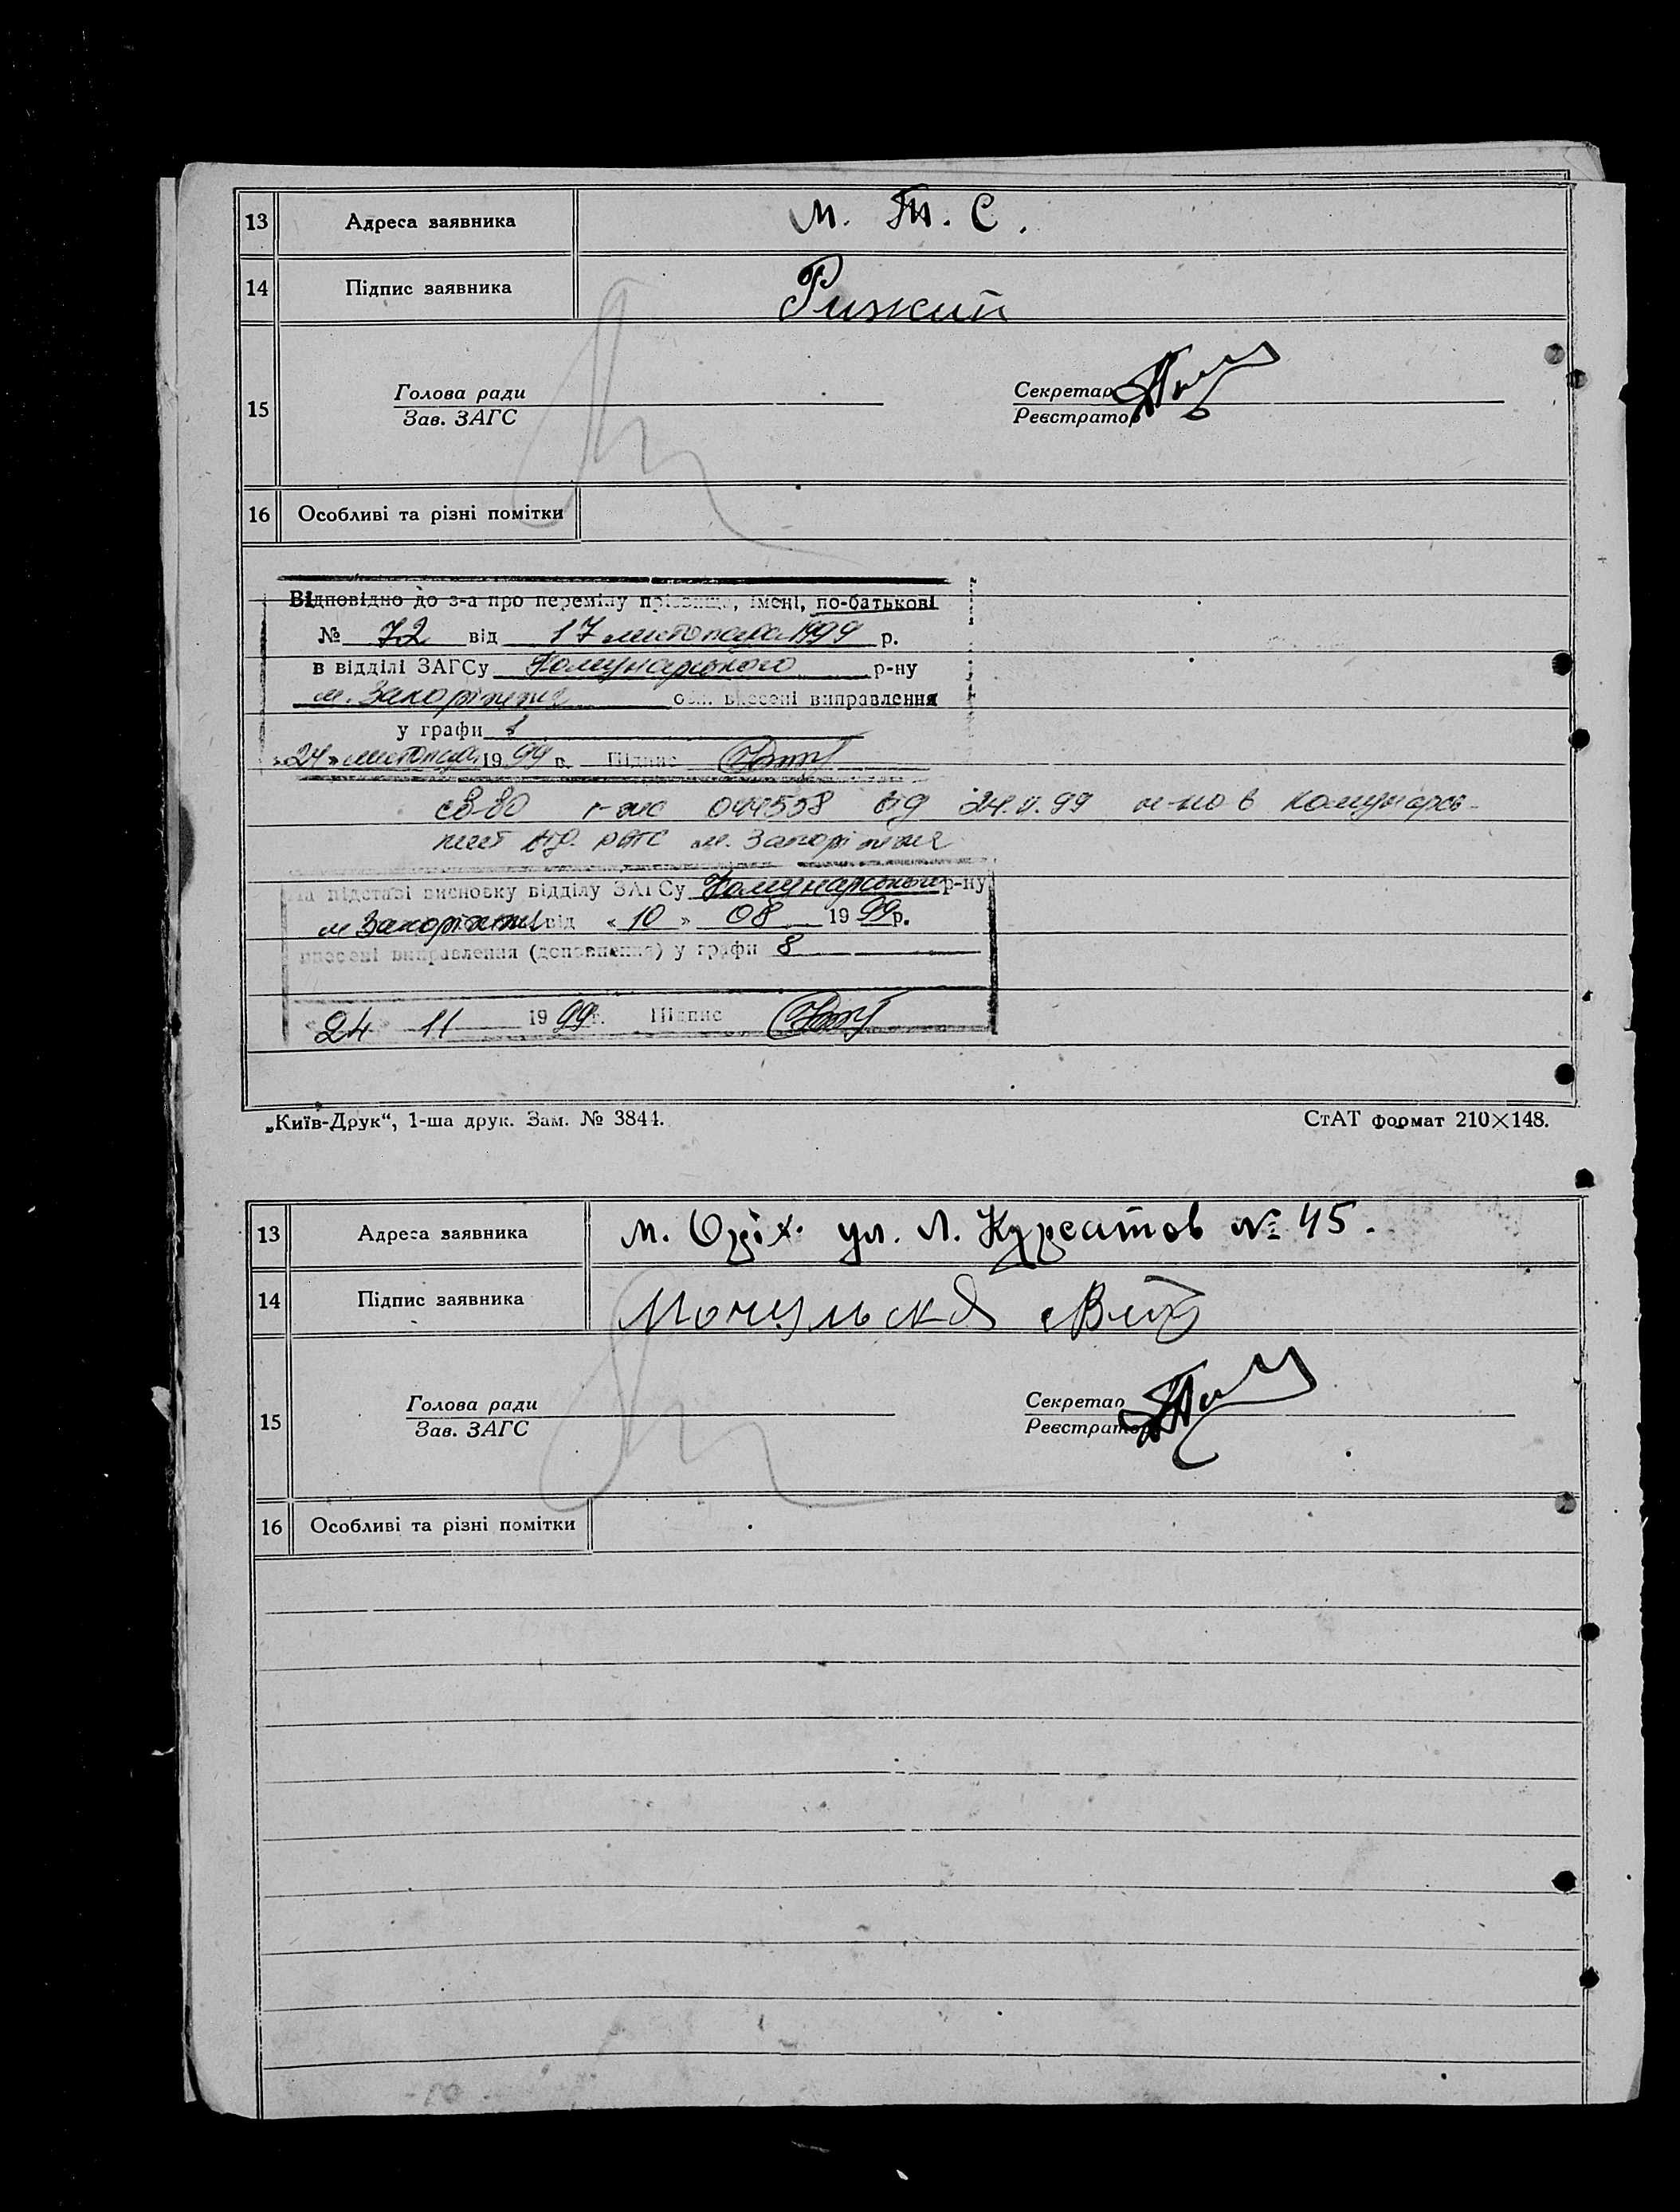 13 Адреса заявника м. т. с.
14 Підпис заявника Рижий
15 Голова ради Секретар
Зав. ЗАГС Реєстратор
16 Особливі та різні помітки
Відповідно до з-а про переміну прізвища, імені, по-батькові
№ 72 від 17 листопада 1999 р.
в відділі ЗАГСу Комунарського р-ну
м. Запоріжжя обл. внесені виправлення
у графи 1
«24» листопада 1999 р. Підпис
св-во 044558 від 24.11.99 Комунарсь-
ким від. РАГС м. Запоріжжя
На підставі висновку відділу ЗАГСу Комунарського р-ну
м Запоріжжя від «10» 08 1999р.
внесені виправлення (доповнення) у графи 8
24 11 1999г. Підпис
„Київ-Друк“, 1-ша друк. Зам. № 3844. СтАТ формат 210×148.
13 Адреса заявника м. Оріх. ул. Л. № 45.
14 Підпис заявника Мочульска
15 Голова ради Секретар
Зав. ЗАГС Реєстратор
16 Особливі та різні помітки